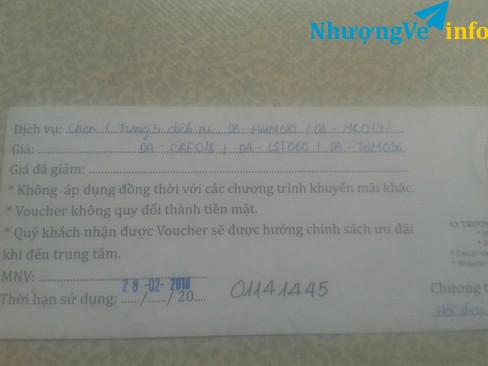 NhượngVe info
Dịch vụ: Chọn 1 trong 5 dịch vụ DA-MUN085 / DA-MRO19 /
Giá: DA-CRE018 / DA-LST060 / DA-THM036
Giá đã giảm:
* Không áp dụng đồng thời với các chương trình khuyến mãi khác.
* Voucher không quy đổi thành tiền mặt.
* Quý khách nhận được Voucher sẽ được hưởng chính sách ưu đãi
khi đến trung tâm.
MNV:
28-02-2018
Thời hạn sử dụng: ....../....../ 20.... 01141445
63 TRƯƠN
Chương t